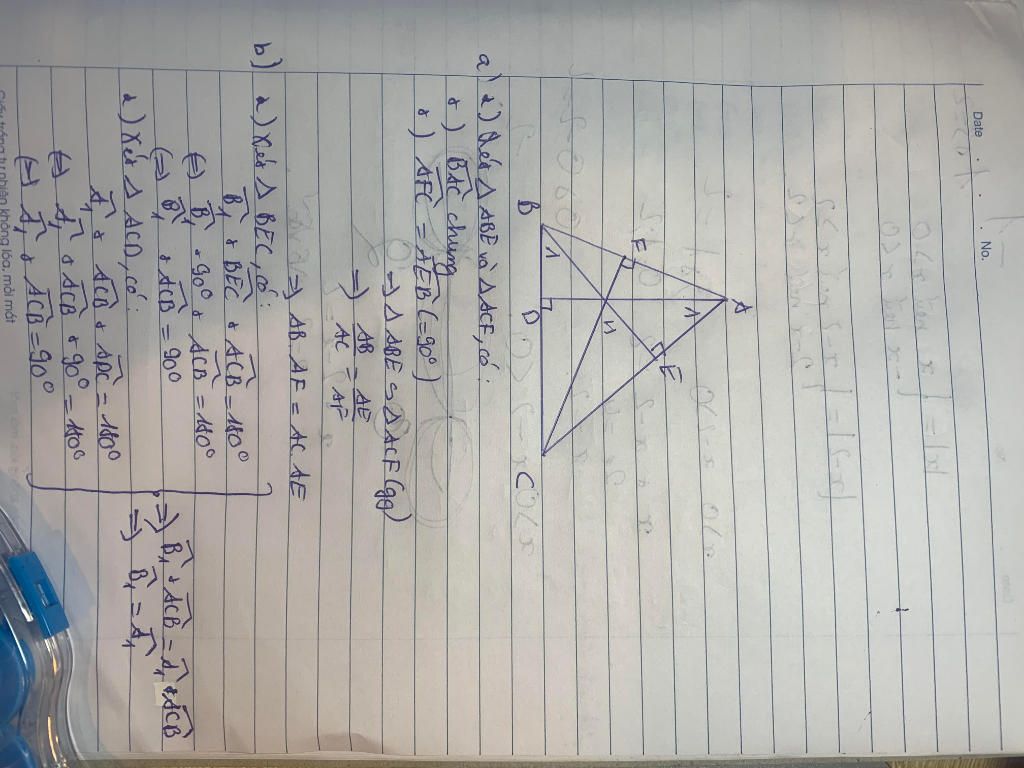 Date
No.
A
1
F
E
H
1
B
D
C
a) *) Xét Δ ABE và Δ ACF, có:
+) BAC chung
+) AFC = AEB (= 90°)
=> Δ ABE ∽ Δ ACF (gg)
=> AB/AC = AE/AF
=> AB. AF = AC. AE
b) *) Xét Δ BEC, có:
B̂1 + BEC + ACB = 180°
<=> B̂1 + 90° + ACB = 180°
<=> B̂1 + ACB = 90°
*) Xét Δ ACD, có:
Â1 + ACB + ADC = 180°
<=> Â1 + ACB + 90° = 180°
<=> Â1 + ACB = 90°
=> B̂1 + ACB = Â1 + ACB
=> B̂1 = Â1